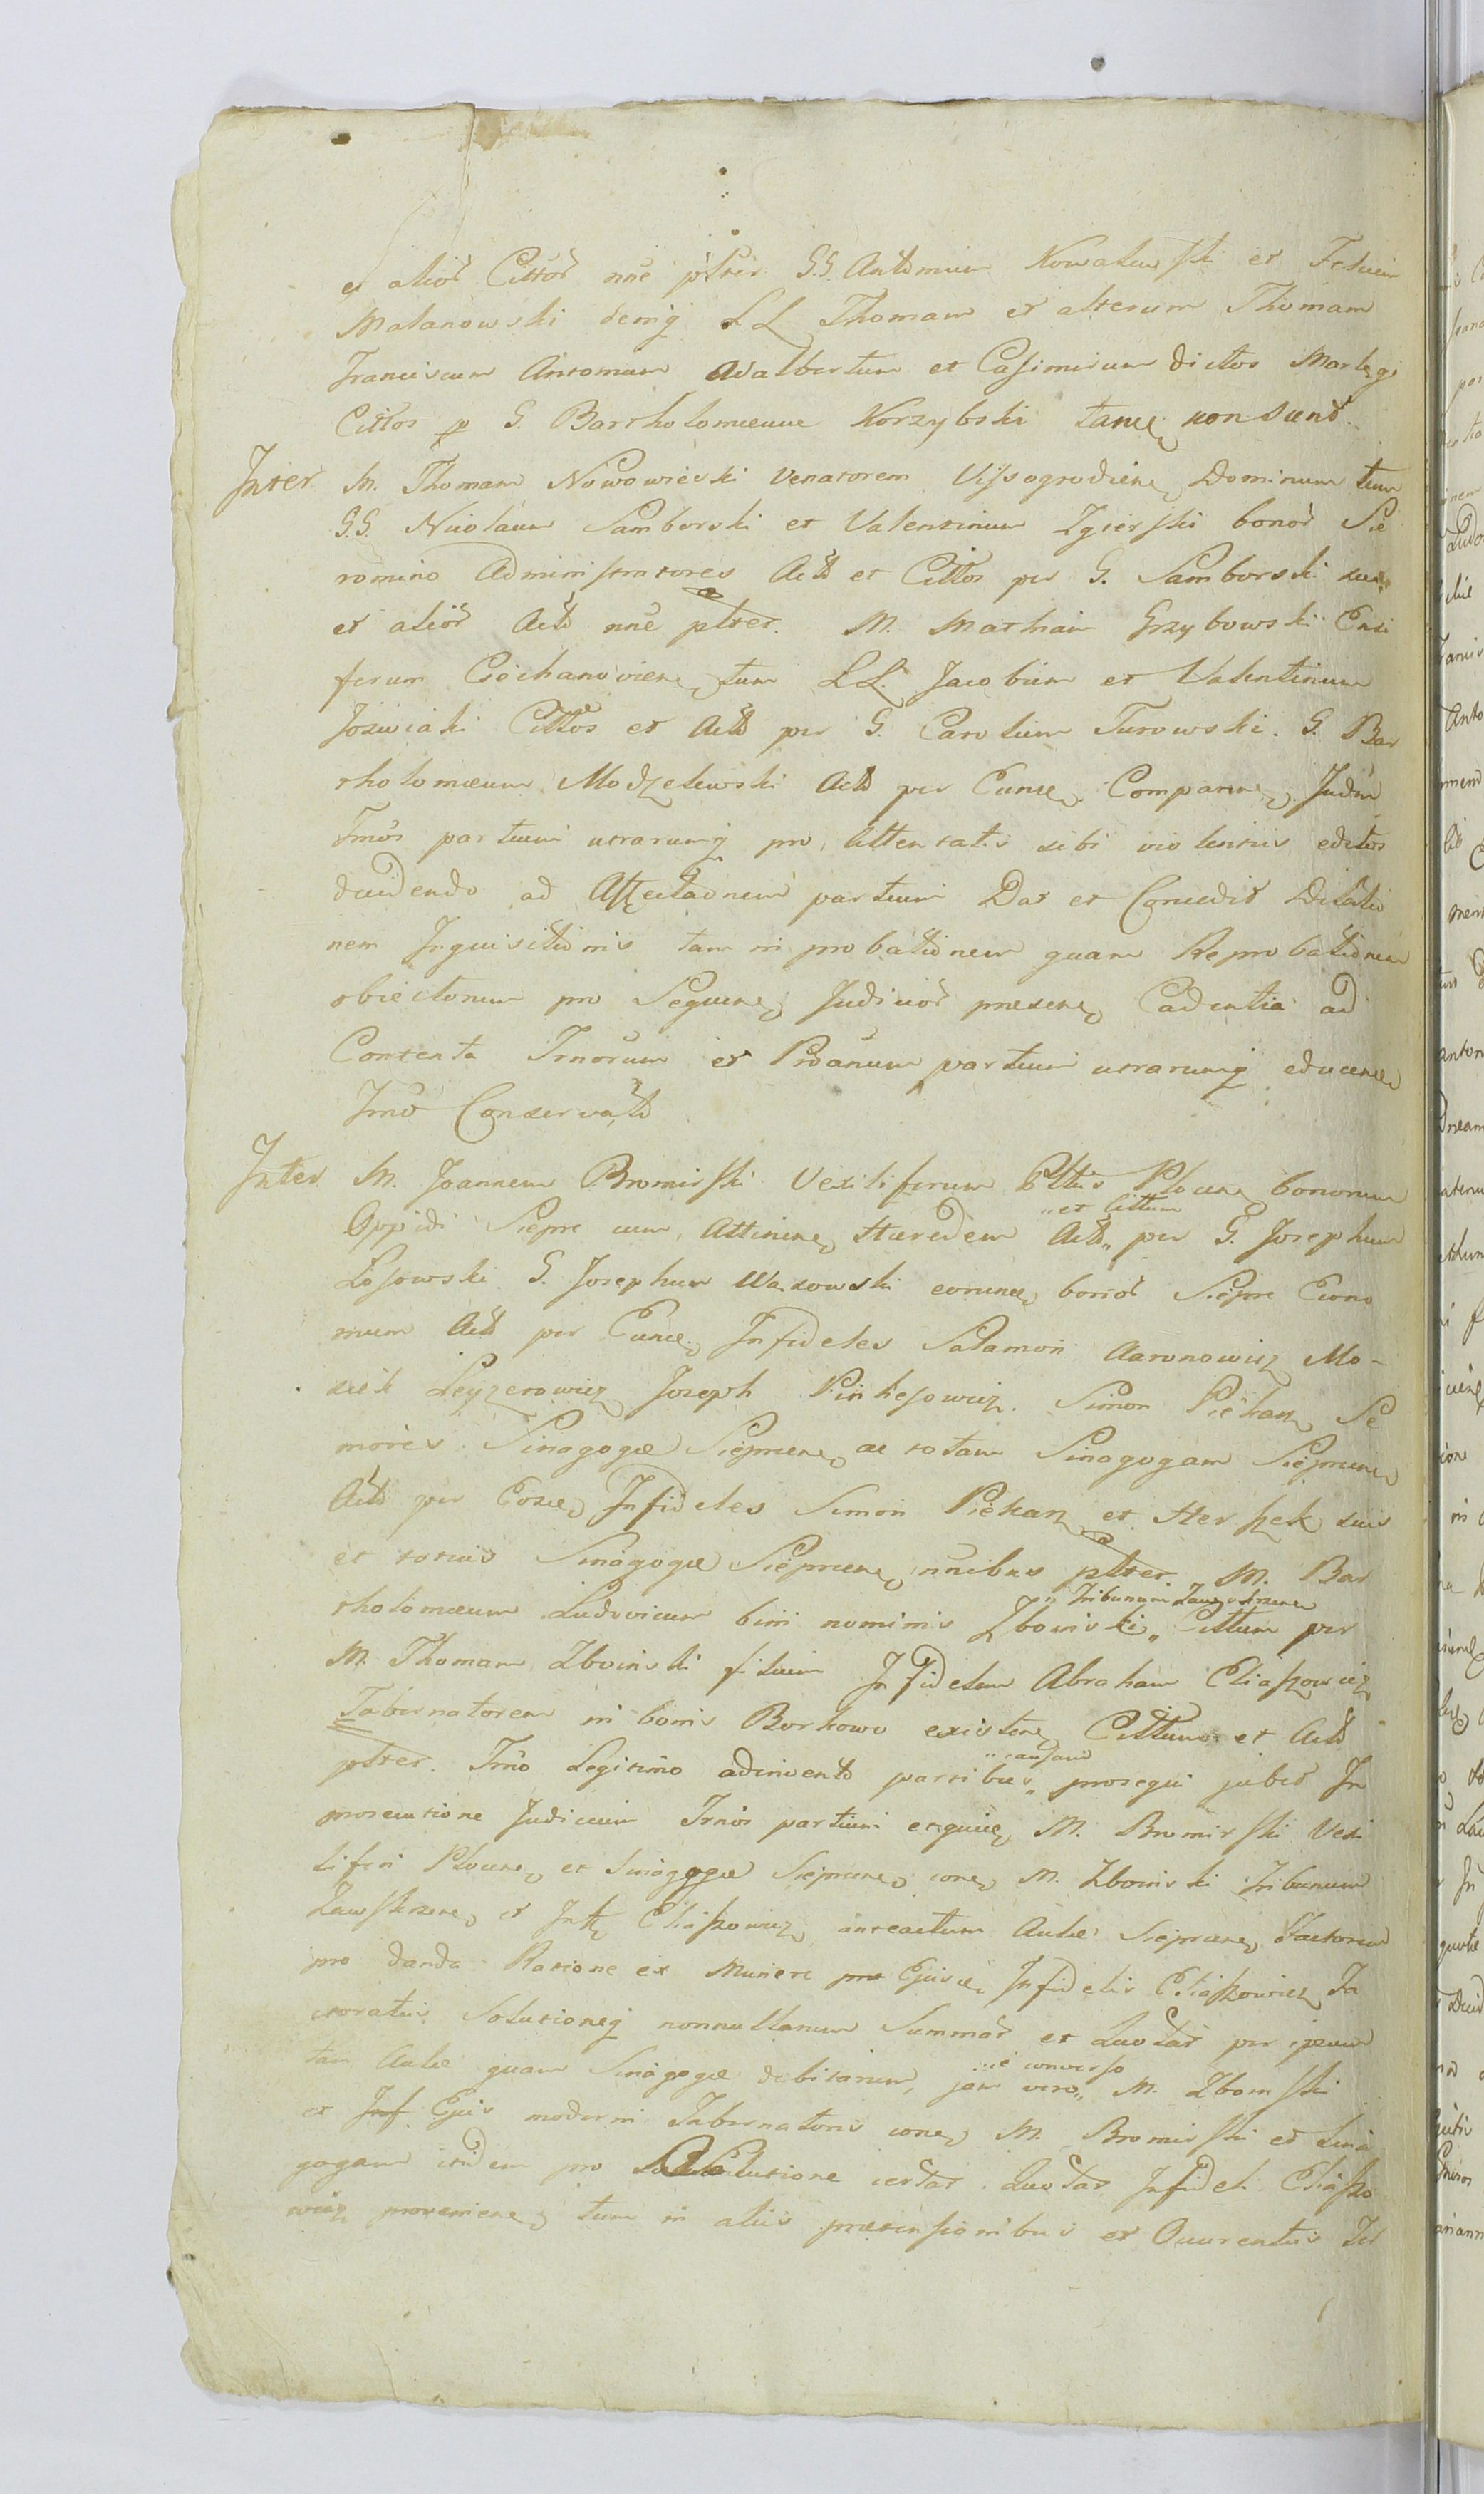 et alior Cittor nne plter G.G. Antonium Kowalewski et Felicem
Malanowski deniq LL Thomam et alterum Thomam
Franciscum Antonium Adalbertum et Casimirum dictos
Cittos p G. Bartholomeum Korzybski non sunt.
Inter M. Thomam Nowowieski Venatorem Vissogrodien Dominum tum
G.G. Nicolaum Samborski et Valentinum Zgierski bonor Sie
romino Administratores Acto et Cittos per G. Samborski suo
et alior Acto nne plter. M. Mathiam Grzybowski Ensi
ferum Ciechanovien tum LL. Jacobum et Valentinum
Jozwiaki Cittos et Acto per G. Carolum Turowski. G. Bar
tholomeum Modzelewski Acto per Eunde Comparen Judm
Tmos partium utrarumq pro attentatis sibi violentiis editos
decidendo ad Affectaonem partium Dat et Concedit Dilatio
nem Inquisitionis tam in probationem quam Reprobationem
obiectorum pro Sequen Judicior presen Cadentia ad
Contenta Tmorum et Proanum partium utrarumq educen
Tmo Conservato
Inter M. Joannem Bromirski Vexiliferum Pltus Plocen bonorum
Oppidi Sieprc cum Attinen Hæredem Acto „et Cittum„ per G. Josephum
Losowski G. Josephum Wasowski eorunde bonor Sieprc Econo
mum Acto per Eunde Infideles Salamon Aaronowicz Mo-
siek Leyzerowicz Joseph Pinkesowicz. Simon Piekarz Se
niores Sinagogæ Sieprcen ac totam Sinagogam Sieprcen
Acto per Eosde Infideles Simon Piekarz et Herszek suis
et totius Sinagogæ Sieprcen nnibus plter. M. Bar
tholomeum Ludovicum bini nominis Zboinski „Tribunum Zawskrzen„ Cittum per
M. Thomam Zboinski filium Infidelem Abraham Eliaszowicz
Tabernatorem in bonis Borkowo existen Cittum et Acto
plter. Tmo Legitimo adinvento partibus „causam„ prosequi jubet In
prosecutione Judicium Tmos partium M. Bromirski Vexi
liferi Plocen et Sinagogæ Sieprcen con M. Zboinski Tribunum
Zawskrzen et Infl Eliaszowicz anteactum Aulæ Sieprcen Factorem
pro danda Ratione ex Munere Ejusde Infidelis Eliaszowicz Fa
ctoratus Solutioneq nonnullarum Summar et Quotar per ipsum
tam Aulæ quam Sinagogæ debitarum, jam vero „e converso„ M. Zboinski
et Ejus moderni Tabernatoris con M. Bromirski et Sina
gogam itidem pro Solutione certar Quotar Infideli Eliaszo
wicz provenien tum in aliis prætensionibus et Querentiis